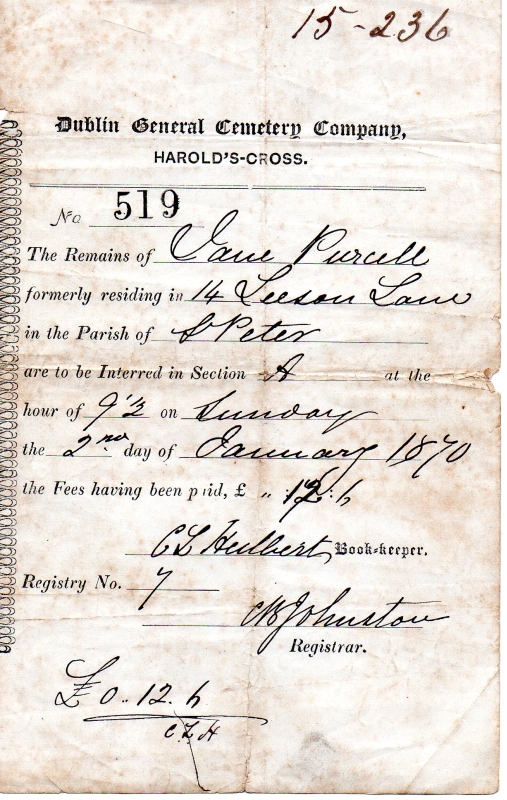 15-236
Dublin General Cemetery Company,
HAROLD'S-CROSS.
No 519
The Remains of Jane Purcell
formerly residing in 14 Leeson Lane
in the Parish of St Peter
are to be Interred in Section A at the
hour of 9½ on Sunday
the 2nd day of January 1870
the Fees having been paid, £ „ 12 : 6
C L Hulbert, Book-keeper.
Registry No. 7
Johnston
Registrar.
£0.. 12. 6
C L H